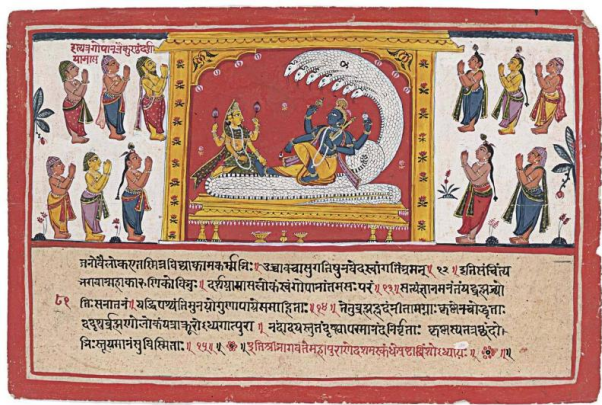 जनोवैलोकएतस्मिन्नविद्याकामकर्मभिः॥उच्चावचासुगतिषुनवेदस्वांगतिंभ्रमन्॥१२॥इतिसंचिंत्य
भगवान्महाकारुणिकोविभुः॥दर्शयामासलोकंस्वंगोपानांतमसःपरं॥१३॥सत्यंज्ञानमनंतंयद्ब्रह्मज्यो
तिःसनातनं॥यद्धिपश्यंतिमुनयोगुणापायेसमाहिताः॥१४॥तेतुब्रह्मह्रदंनीतामग्नाःकृष्णेनचोद्धृताः
ददृशुर्ब्रह्मणोलोकंयत्राक्रूरोध्यगात्पुरा॥नंदादयस्तुतंदृष्ट्वापरमानंदनिर्वृताः॥कृष्णंचतत्रछंदो
भिःस्तूयमानंसुविस्मिताः॥१५॥इतिश्रीभागवतेमहापुराणेदशमस्कंधेअष्टाविंशोरध्यायः॥